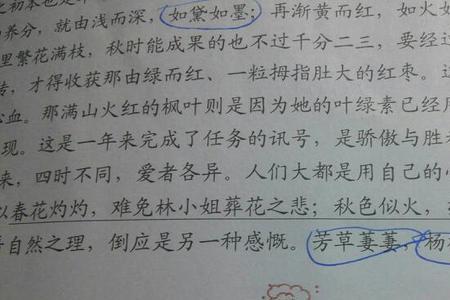 养分,就由浅而深,如黛如墨;再渐黄而红,如火如
里繁花满枝,秋时能成果的也不过千分二三,要经过
转,才得收获那由绿而红、一粒拇指肚大的红枣。这
血。那满山火红的枫叶则是因为她的叶绿素已经用
现。这是一年来完成了任务的讯号,是骄傲与胜
来,四时不同,爱者各异。人们大都是用自己的
以春花灼灼,难免林小姐葬花之悲;秋色似火,
自然之理,倒应是另一种感慨。芳草萋萋,杨